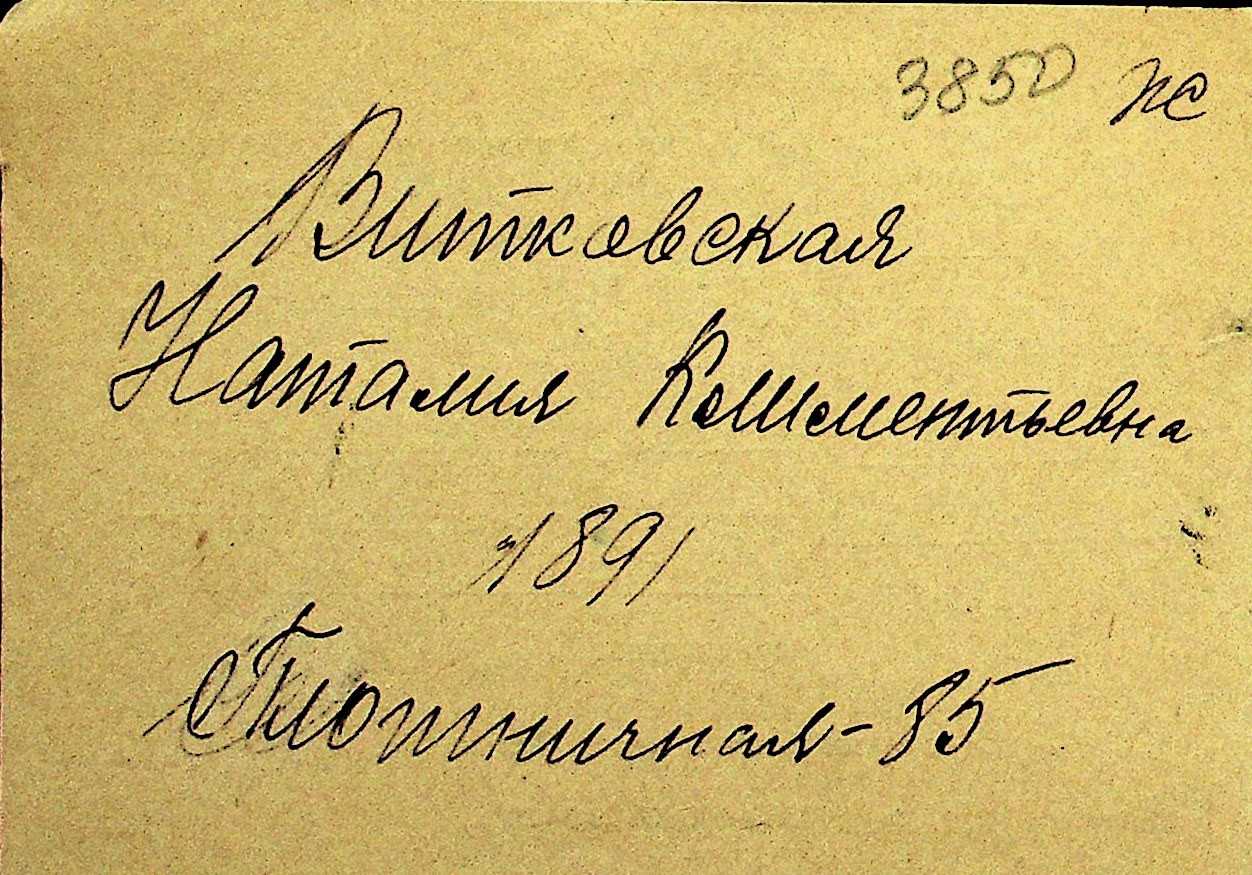 3850 ПС
Витковская
Наталия Климентьевна
1891
Плотничная-85